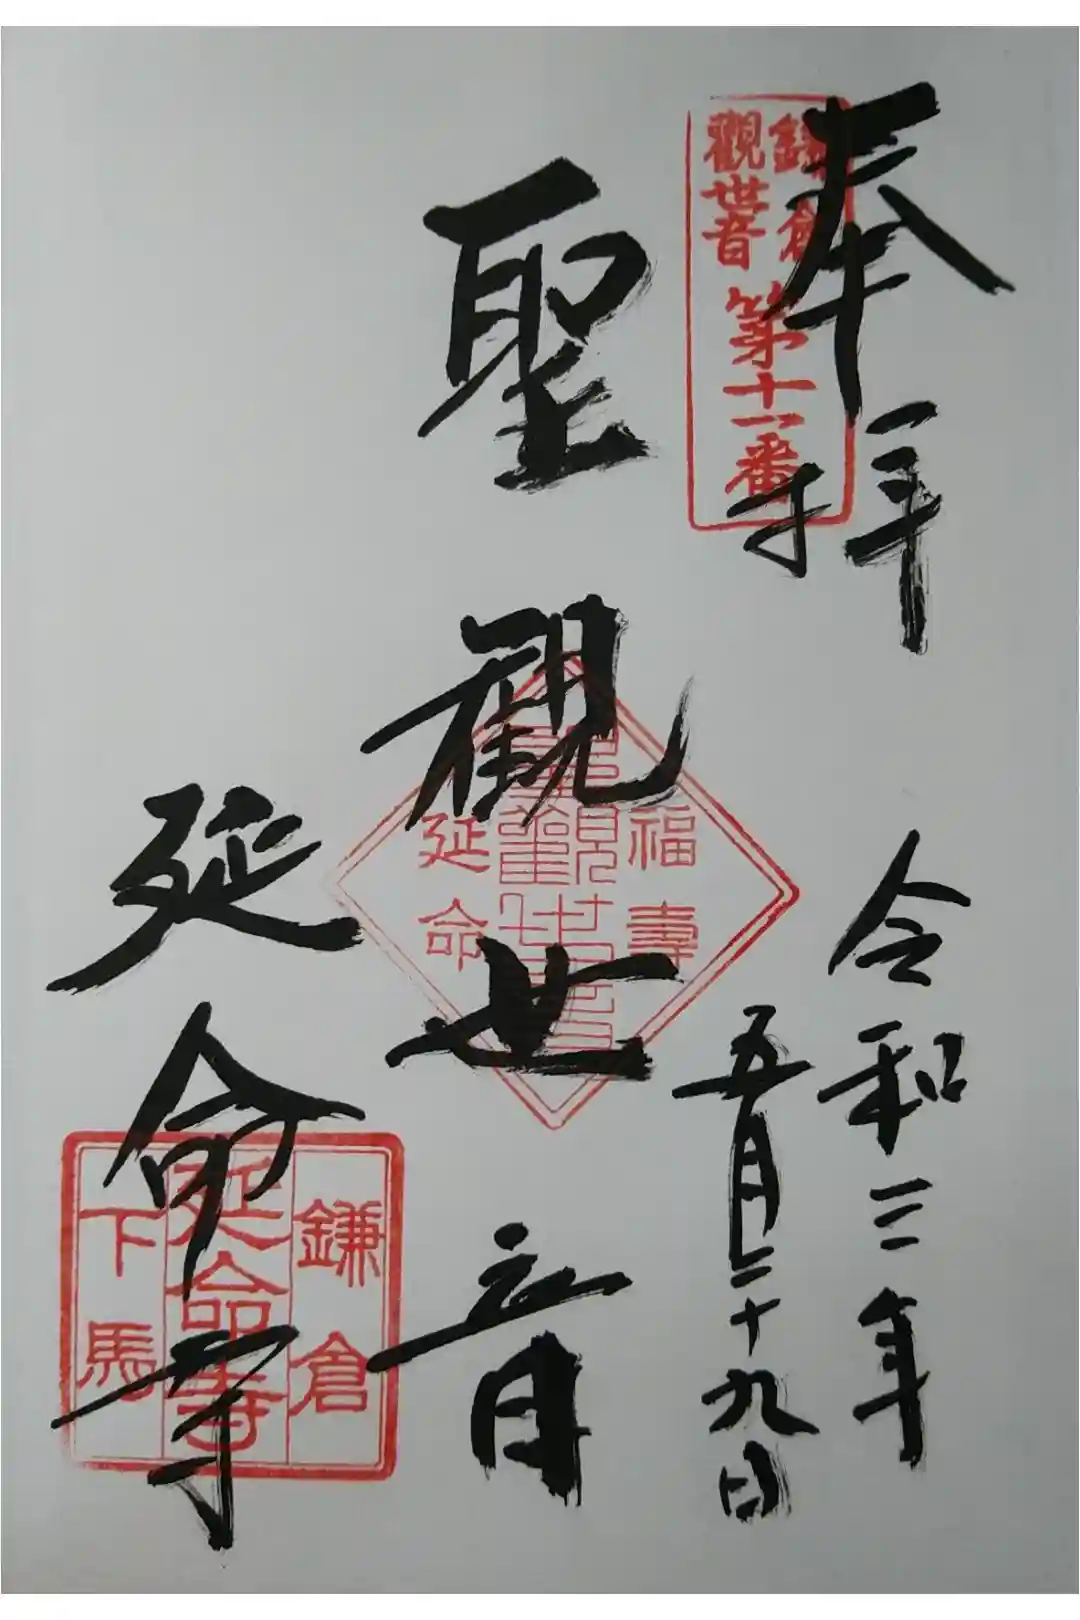 奉拝
鎌倉
觀世音
第十一番
令和三年
五月二十九日
聖観世音
福壽
聖觀世音
延命
延命寺
鎌倉
延命寺
下馬